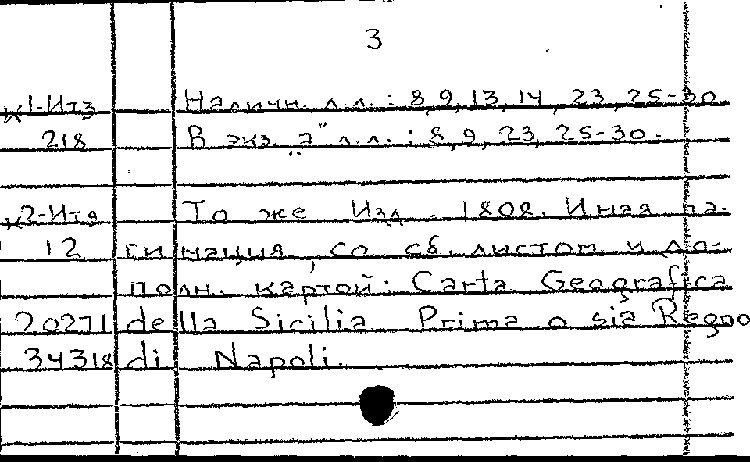 3
К1-Итз Наличн. л.л.: 8, 9, 13, 14, 23, 25-30
218 В экз. "а" л.л.: 8, 9, 23, 25-30.
К2-Итя То же Изд. 1808. Иная па-
12 гинация, со сб. листом и до-
полн. картой: Carta Geografica
20271 della Sicilia Prima o sia Regno
34318 di Napoli.